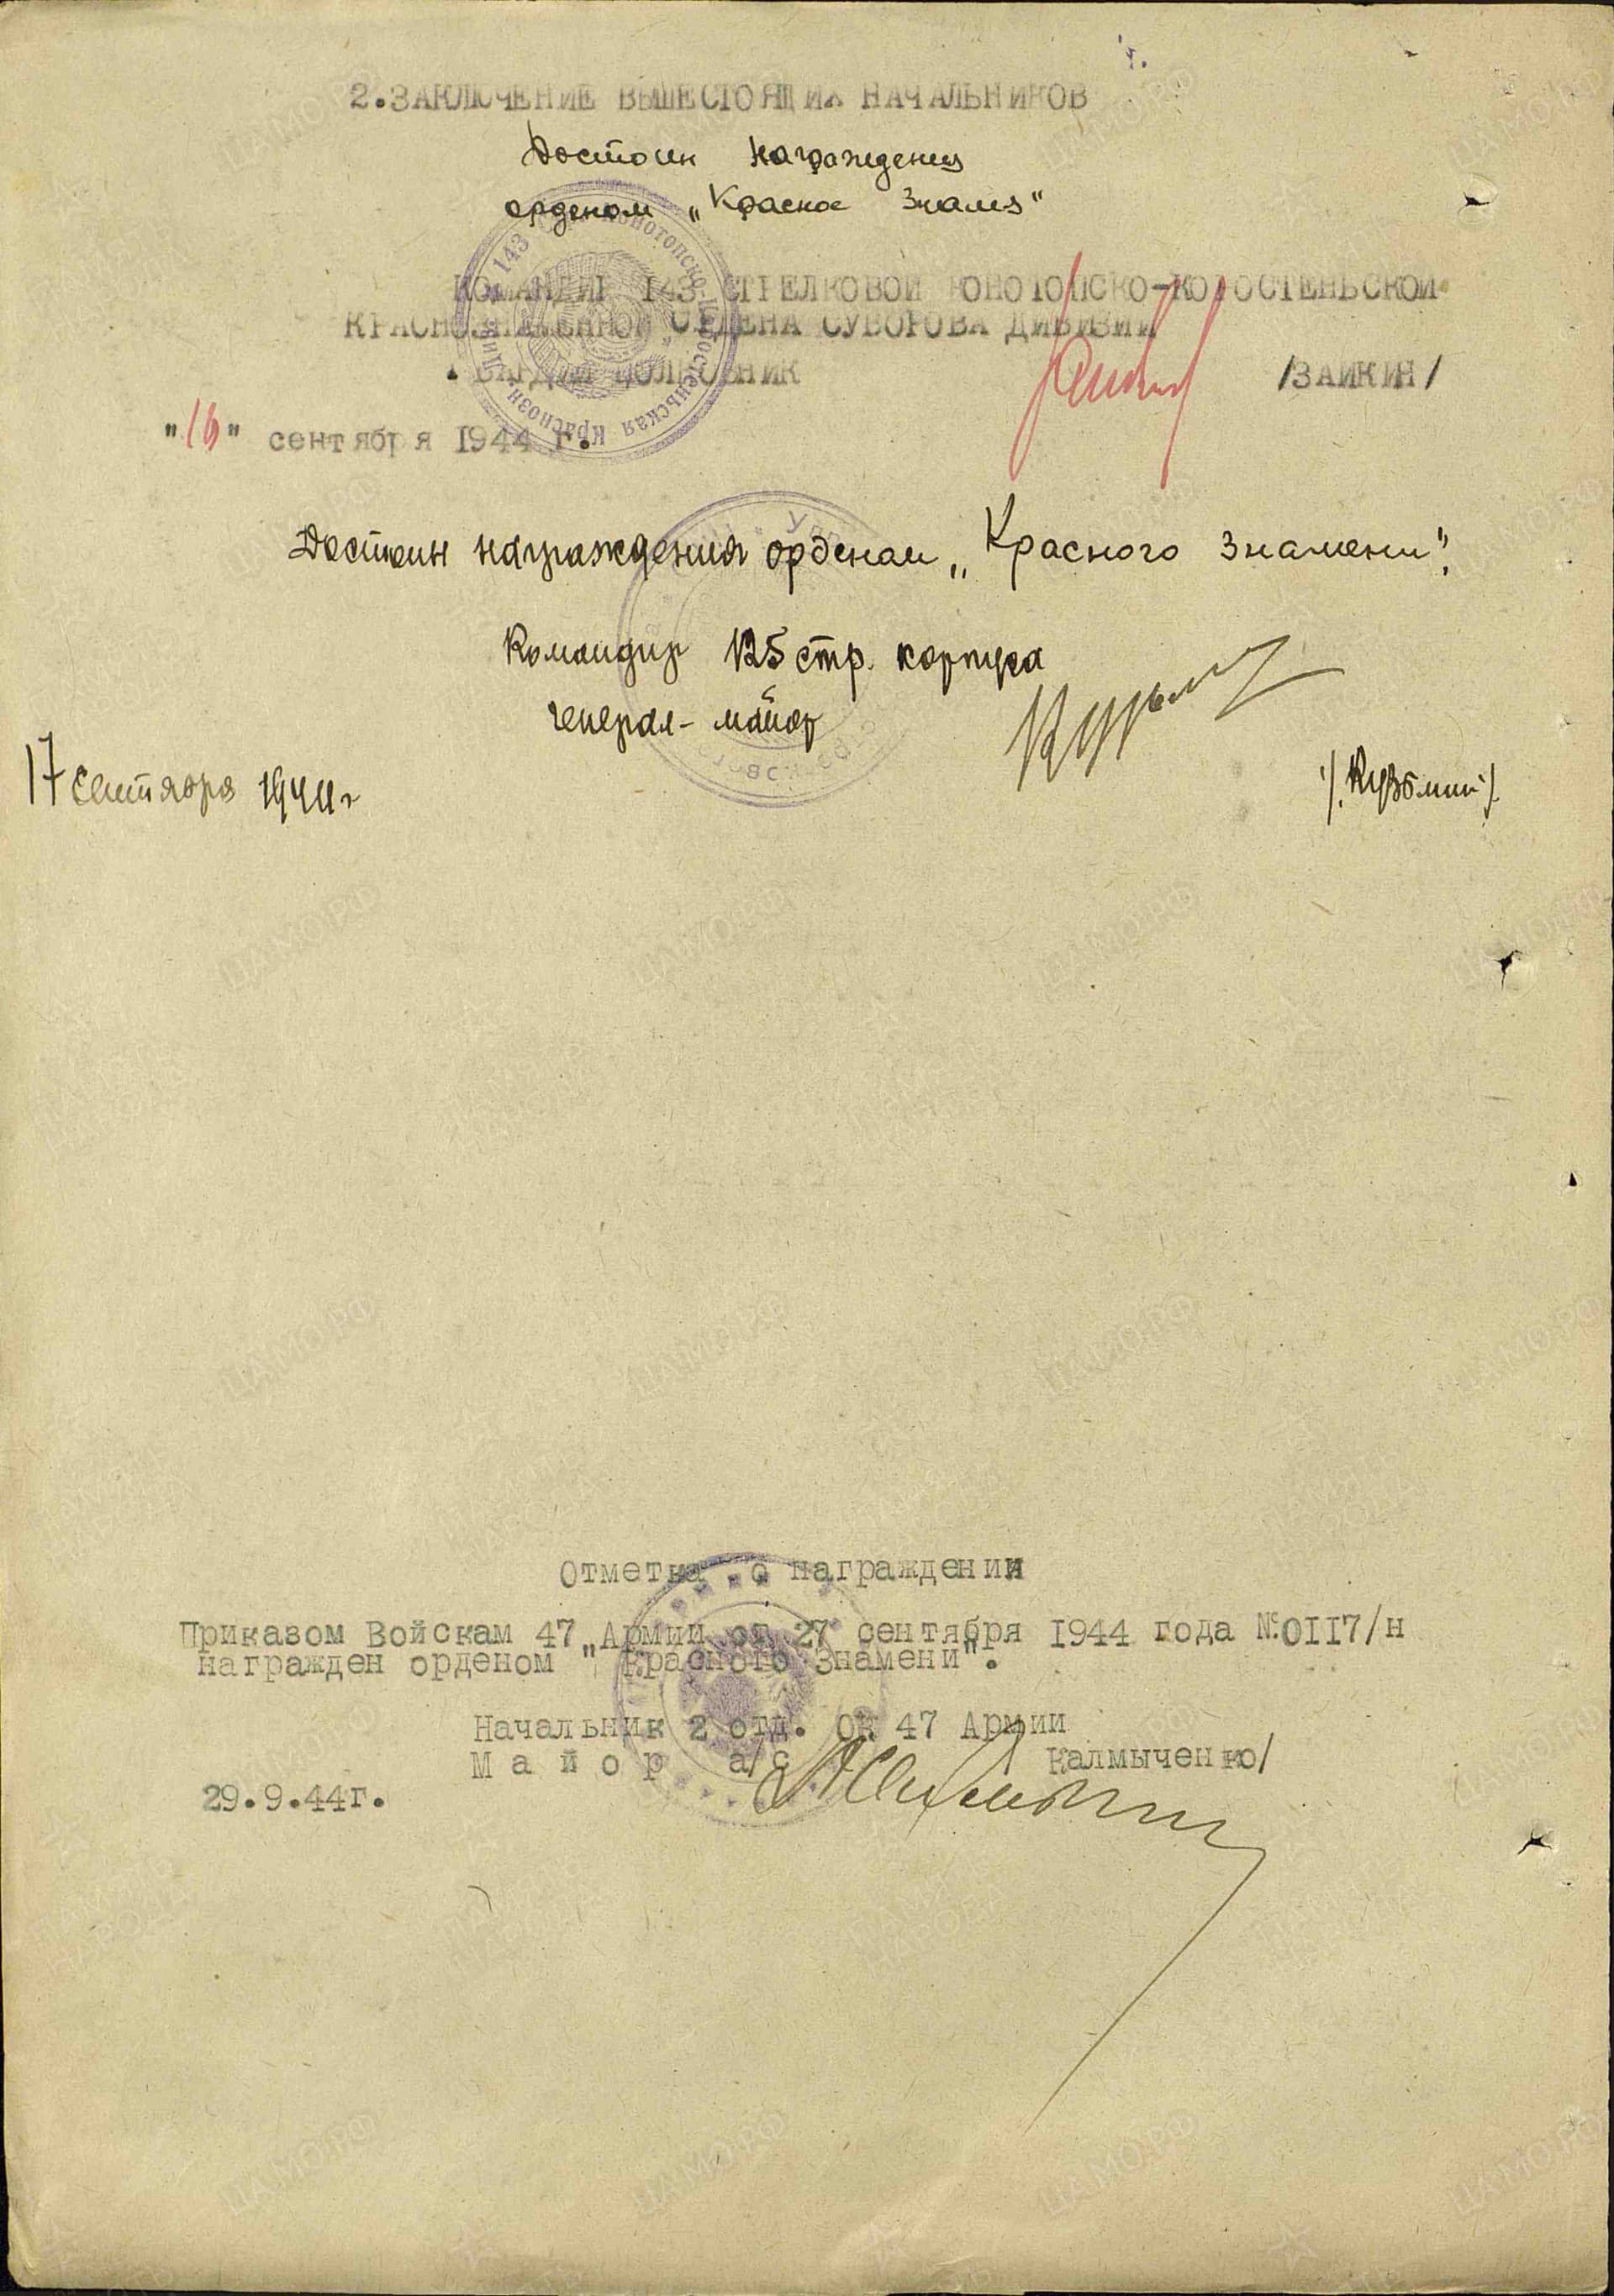 2.ЗАКЛЮЧЕНИЕ ВЫШЕСТОЯЩИХ НАЧАЛЬНИКОВ
Достоин награждения
орденом „Красное Знамя"
КОМАНДИР 143 СТРЕЛКОВОЙ КОНОТОПСКО-КОРОСТЕНЬСКОЙ
КРАСНОЗНАМЕННОЙ ОРДЕНА СУВОРОВА ДИВИЗИИ
ГВАРДИИ ПОЛКОВНИК /ЗАИКИН/
"16" сентября 1944 г.
Достоин награждения орденом „Красного Знамени".
Командир 125 стр. корпуса
генерал-майор
/Кузьмин/
17 сентября 1944г
Отметка о награждении
Приказом Войскам 47 Армии от 27 сентября 1944 года №:0117/н
награжден орденом "Красного Знамени".
Начальник 2 отд. ОК 47 Армии
Майор а/с Калмыченко/
29.9.44г.